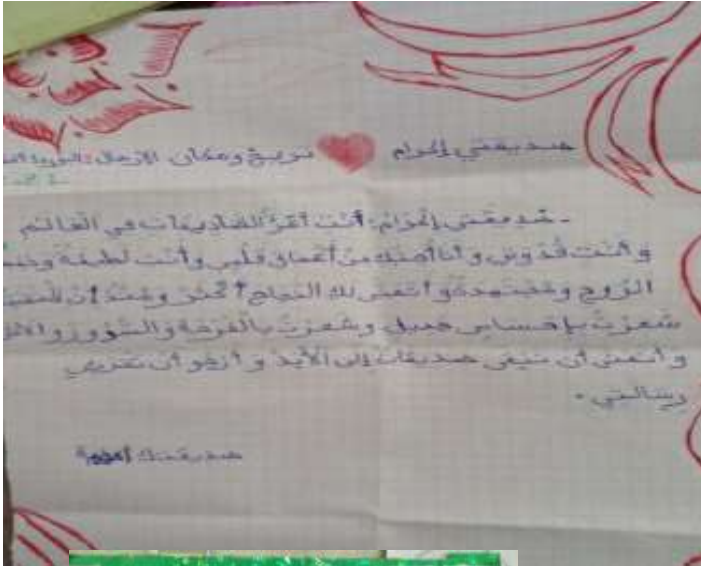 صديقتي إكرام تريخ ومكان الإرسال:
- صَديقتي إكْرَامْ: أنْت أعَزُّ الصَّدِيقَات فِي العَالَم
وَأنْت قُدْوتِي وأنا أحبّك مِنْ أعْمَاق قَلْبِي وأنت لَطِيفَة
الرُّوح ومُجْتَهِدَة وأتَمَنى لك النجاح أكْثَر وَمُنْذُ أنْ
شَعَرْتُ بِإحْسَاسٍ جَمِيل وشَعَرْتُ بِالفَرْحَة والسُّرُور
وأتمنى أن نبقى صديقات إلى الأبد وأرجو أن تقرئي
رسالتي.
صديقتك